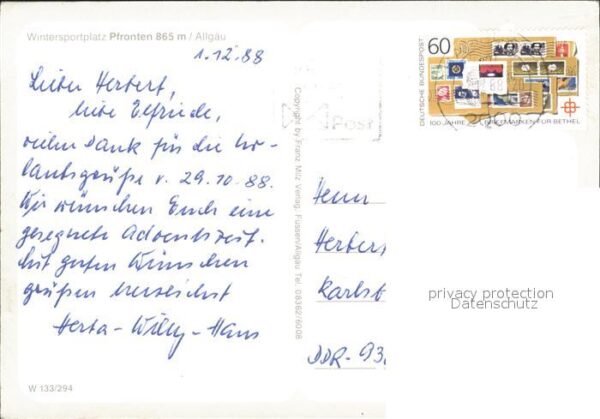 Wintersportplatz Pfronten 865 m / Allgäu
1.12.88
Lieber Herbert,
liebe Elfriede,
vielen Dank für die Ur-
laubsgrüße v. 29.10.88.
Wir wünschen Euch eine
gesegnete Adventszeit.
Mit guten Wünschen
grüßen herzlichst
Herta - Willy - Hans
W 133/294
Copyright by Franz Milz Verlag, Füssen/Allgäu Tel. 08362/6008
Post
DEUTSCHE BUNDESPOST
60
100 JAHRE BRIEFMARKEN FÜR BETHEL
Herrn
Herbert
DDR-93
privacy protection
Datenschutz